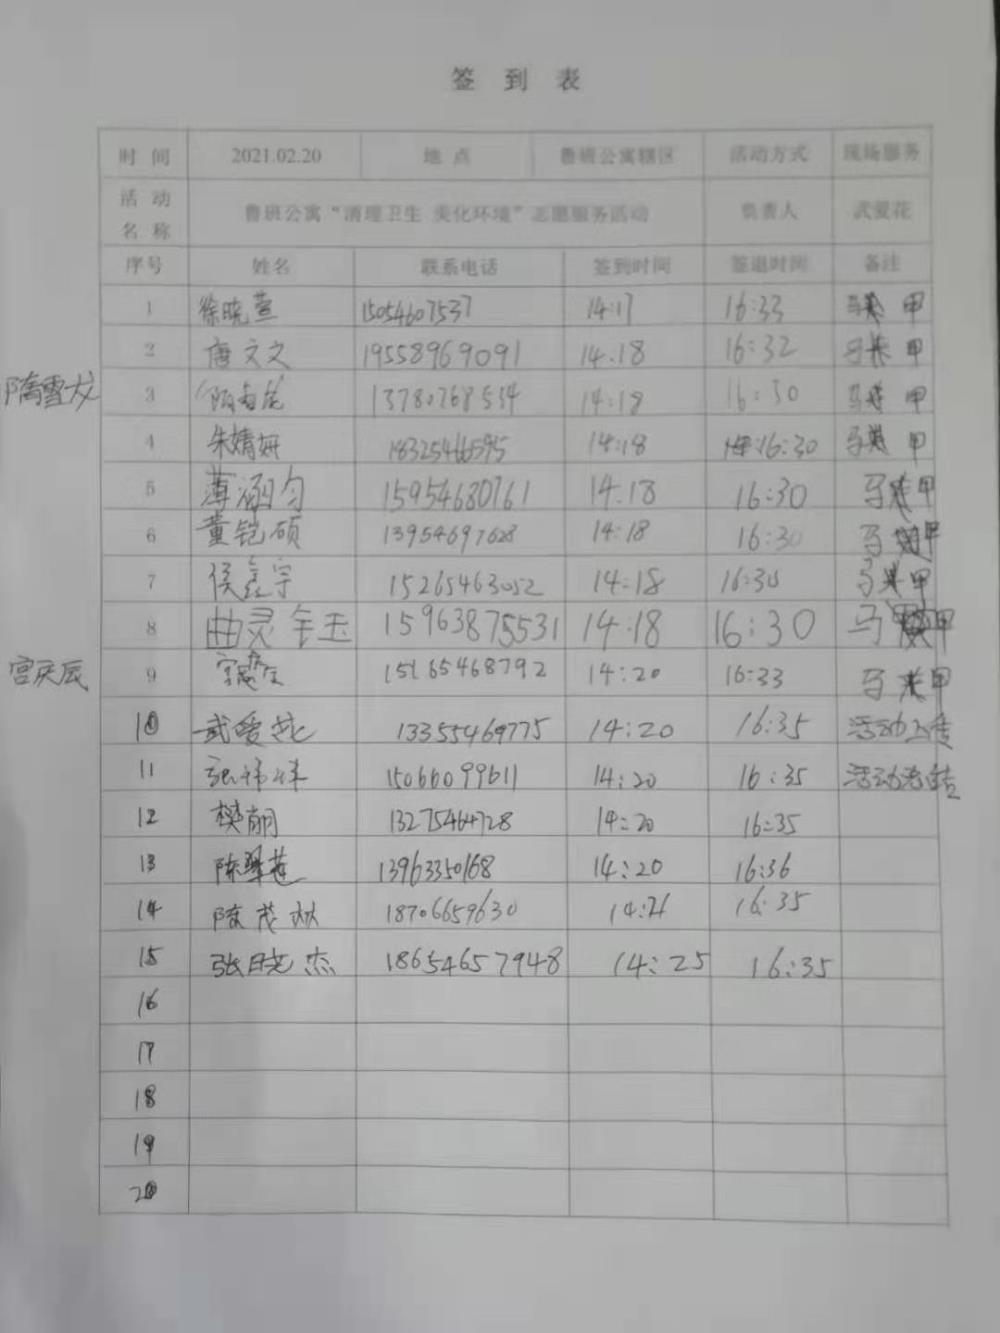 签 到 表
时 间 2021.02.20 地 点 鲁班公寓辖区 活动方式 现场服务
活 动 名 称 鲁班公寓“清理卫生 美化环境”志愿服务活动 负责人 武爱花
序号 姓名 联系电话 签到时间 签退时间 备注
1 徐晓萱 15054607537 14:17 16:33 马 甲
2 唐文文 19558969091 14.18 16:32 马 甲
隋雪龙 3 13780768534 14:18 16:30 马 甲
4 朱婧妍 14:18 16:30 马 甲
5 薄涵匀 15954680761 14.18 16:30 马 甲
6 董铠硕 13954697628 14:18 16:30 马 甲
7 侯鑫宇 15265463052 14:18 16:30 马 甲
8 曲灵钰玉 15963875531 14:18 16:30 马 甲
宫庆辰 9 15165468792 14:20 16:33 马 甲
10 武爱花 13355469775 14:20 16:35 活动上传
11 15066099611 14:20 16:35 活动总结
12 樊萠 13275464728 14:20 16:35
13 陈翠莲 13963350168 14:20 16:36
14 陈茂 18706659630 14:21 16:35
15 张晓杰 18654657948 14:25 16:35
16
17
18
19
20